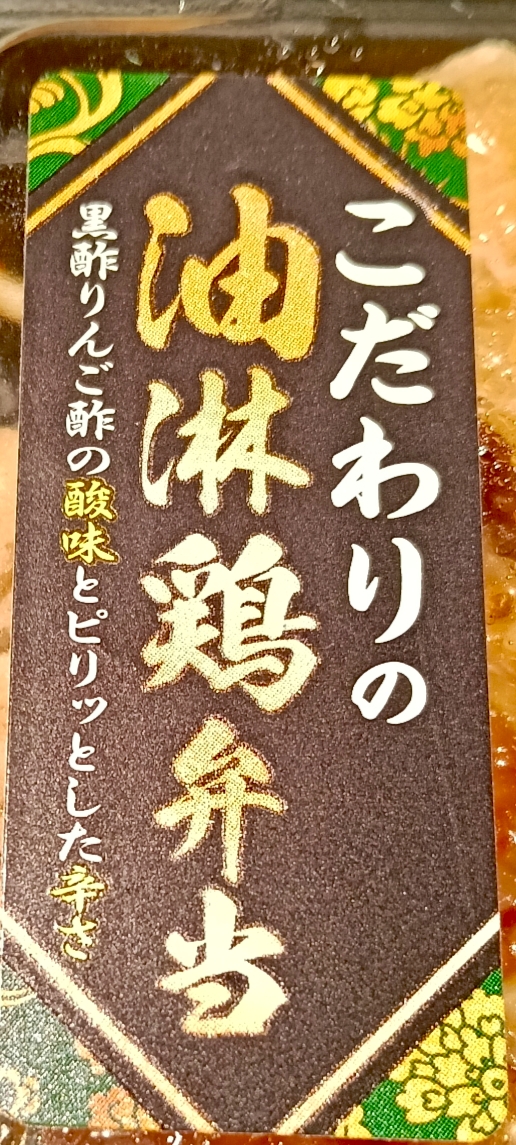 こだわりの
油淋鶏弁当
黒酢りんご酢の酸味とピリッとした辛さ